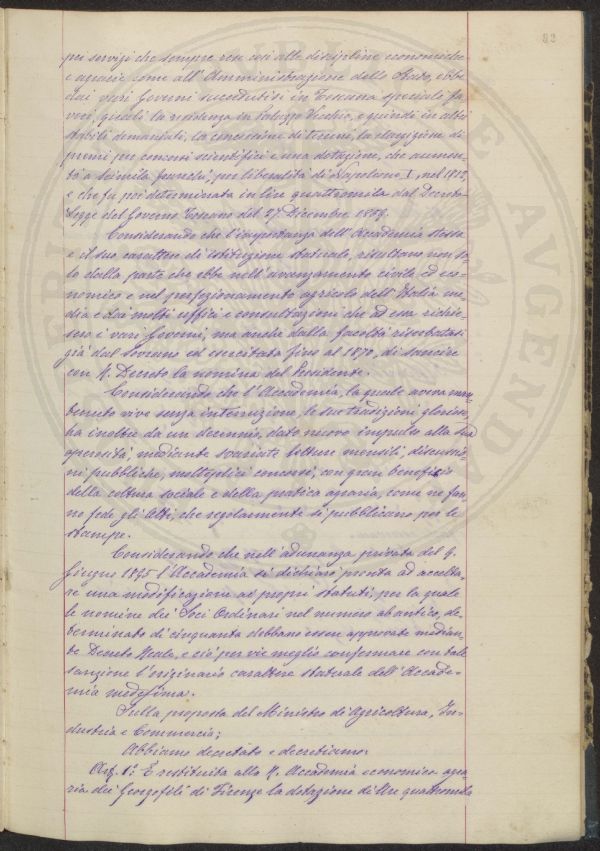 82
pei servigi che sempre rese così alle discipline economiche
e agrarie come all'Amministrazione dello Stato, ebbe
dai vari Governi succedutisi in Toscana speciali fa-
vori, quali la residenza in Palazzo Vecchio, e quindi in altri
stabili demaniali, la concessione di terreni, la elargizione di
premi per concorsi scientifici e una dotazione, che aumen-
tò a seimila franchi, per liberalità di Napoleone I, nel 1812,
e che fu poi determinata in lire quattromila dal Decreto-
Legge del Governo Toscano del 27 Dicembre 1859.
Considerando che l'importanza dell'Accademia stessa
e il suo carattere di istituzione statuale, risultano non so-
lo dalla parte che ebbe nell'avanzamento civile ed eco-
nomico e nel perfezionamento agricolo dell'Italia me-
dia e dai molti uffici e consultazioni che ad essa richie-
sero i vari Governi, ma anche dalla facoltà riserbatasi
già dal Sovrano ed esercitata fino al 1870, di sancire
con R. Decreto la nomina del Presidente.
Considerando che l'Accademia, la quale aveva man-
tenuto vive senza interruzione, le sue tradizioni gloriose,
ha inoltre da un decennio, dato nuovo impulso alla sua
operosità, mediante svariate letture mensili, discussio-
ni pubbliche, molteplici concorsi, con gran beneficio
della coltura sociale e della pratica agraria, come ne fan-
no fede gli Atti, che regolarmente si pubblicano per le
stampe.
Considerando che nell'adunanza privata del 9.
Giugno 1895 l'Accademia si dichiarò pronta ad accetta-
re una modificazione ai propri statuti, per la quale
le nomine dei Soci Ordinari nel numero ab antico, de-
terminato di cinquanta debbano essere approvate median-
te Decreto Reale, e ciò per vie meglio confermare con tale
sanzione l'originario carattere statuale dell'Accade-
mia medesima.
Sulla proposta del Ministro di Agricoltura, In-
dustria e Commercio;
Abbiamo decretato e decretiamo:
Art. 1.° È restituita alla R. Accademia economico-agra-
ria dei Georgofili di Firenze la dotazione di lire quattromila